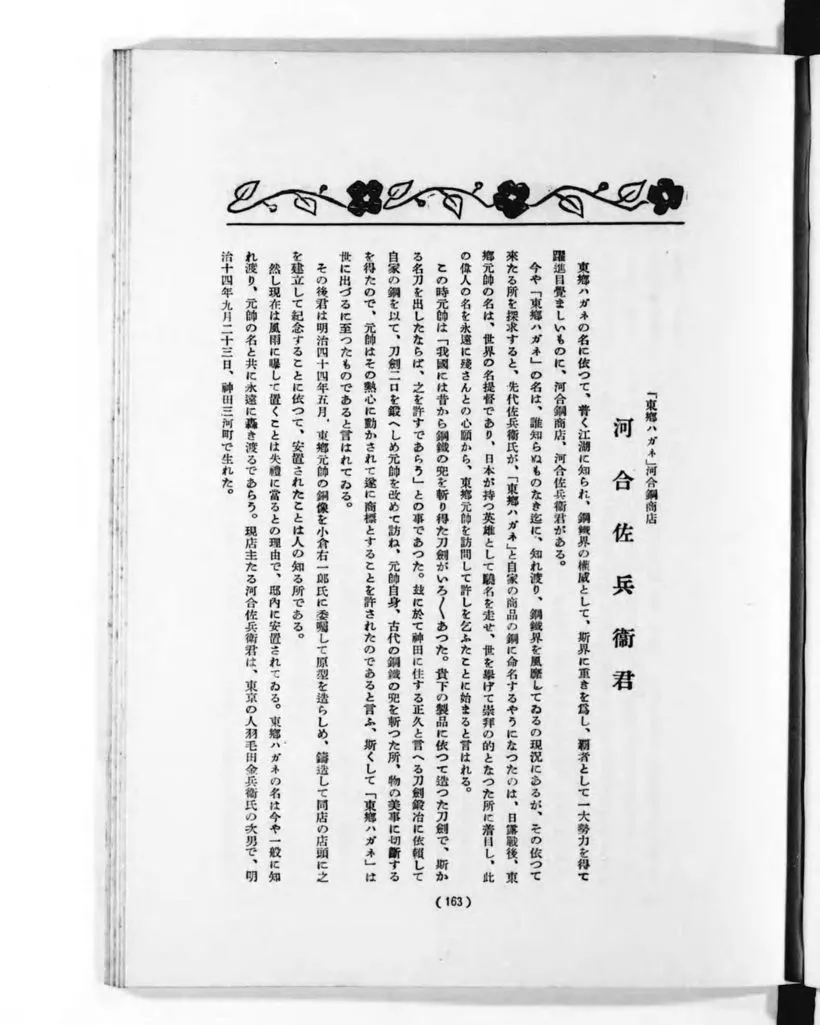 「東鄕ハガネ」河合鋼商店
河合佐兵衞君
東鄕ハガネの名に依つて、普く江湖に知られ、鋼鐵界の權威として、斯界に重きを爲し、覇者として一大勢力を得て
躍進目覺ましいものに、河合鋼商店、河合佐兵衞君がある。
今や「東鄕ハガネ」の名は、誰知らぬものなき迄に、知れ渡り、鋼鐵界を風靡してゐるの現況にあるが、その依つて
來たる所を探求すると、先代佐兵衞氏が、「東鄕ハガネ」と自家の商品の鋼に命名するやうになつたのは、日露戰後、東
鄕元帥の名は、世界の名提督であり、日本が持つ英雄として驍名を走せ、世を擧げて崇拜の的となつた所に着目し、此
の偉人の名を永遠に殘さんとの心願から、東鄕元帥を訪問して許しを乞ふたことに始まると言はれる。
この時元帥は「我國には昔から鋼鐵の兜を斬り得た刀劍がいろ〱あつた。貴下の製品に依つて造つた刀劍で、斯か
る名刀を出したならば、之を許すであらう」との事であつた。玆に於て神田に住する正久と言へる刀劍鍛冶に依賴して
自家の鋼を以て、刀劍二口を鍛へしめ元帥を改めて訪ね、元帥自身、古代の鋼鐵の兜を斬つた所、物の美事に切斷する
を得たので、元帥はその熱心に動かされて遂に商標とすることを許されたのであると言ふ、斯くして「東鄕ハガネ」は
世に出づるに至つたものであると言はれてゐる。
その後君は明治四十四年五月、東鄕元帥の銅像を小倉右一郞氏に委囑して原型を造らしめ、鑄造して同店の店頭に之
を建立して紀念することに依つて、安置されたことは人の知る所である。
然し現在は風雨に曝して置くことは失禮に當るとの理由で、邸內に安置されてゐる。東鄕ハガネの名は今や一般に知
れ渡り、元帥の名と共に永遠に轟き渡るであらう。現店主たる河合佐兵衞君は、東京の人羽毛田金兵衞氏の次男で、明
治十四年九月二十三日、神田三河町で生れた。
(163)